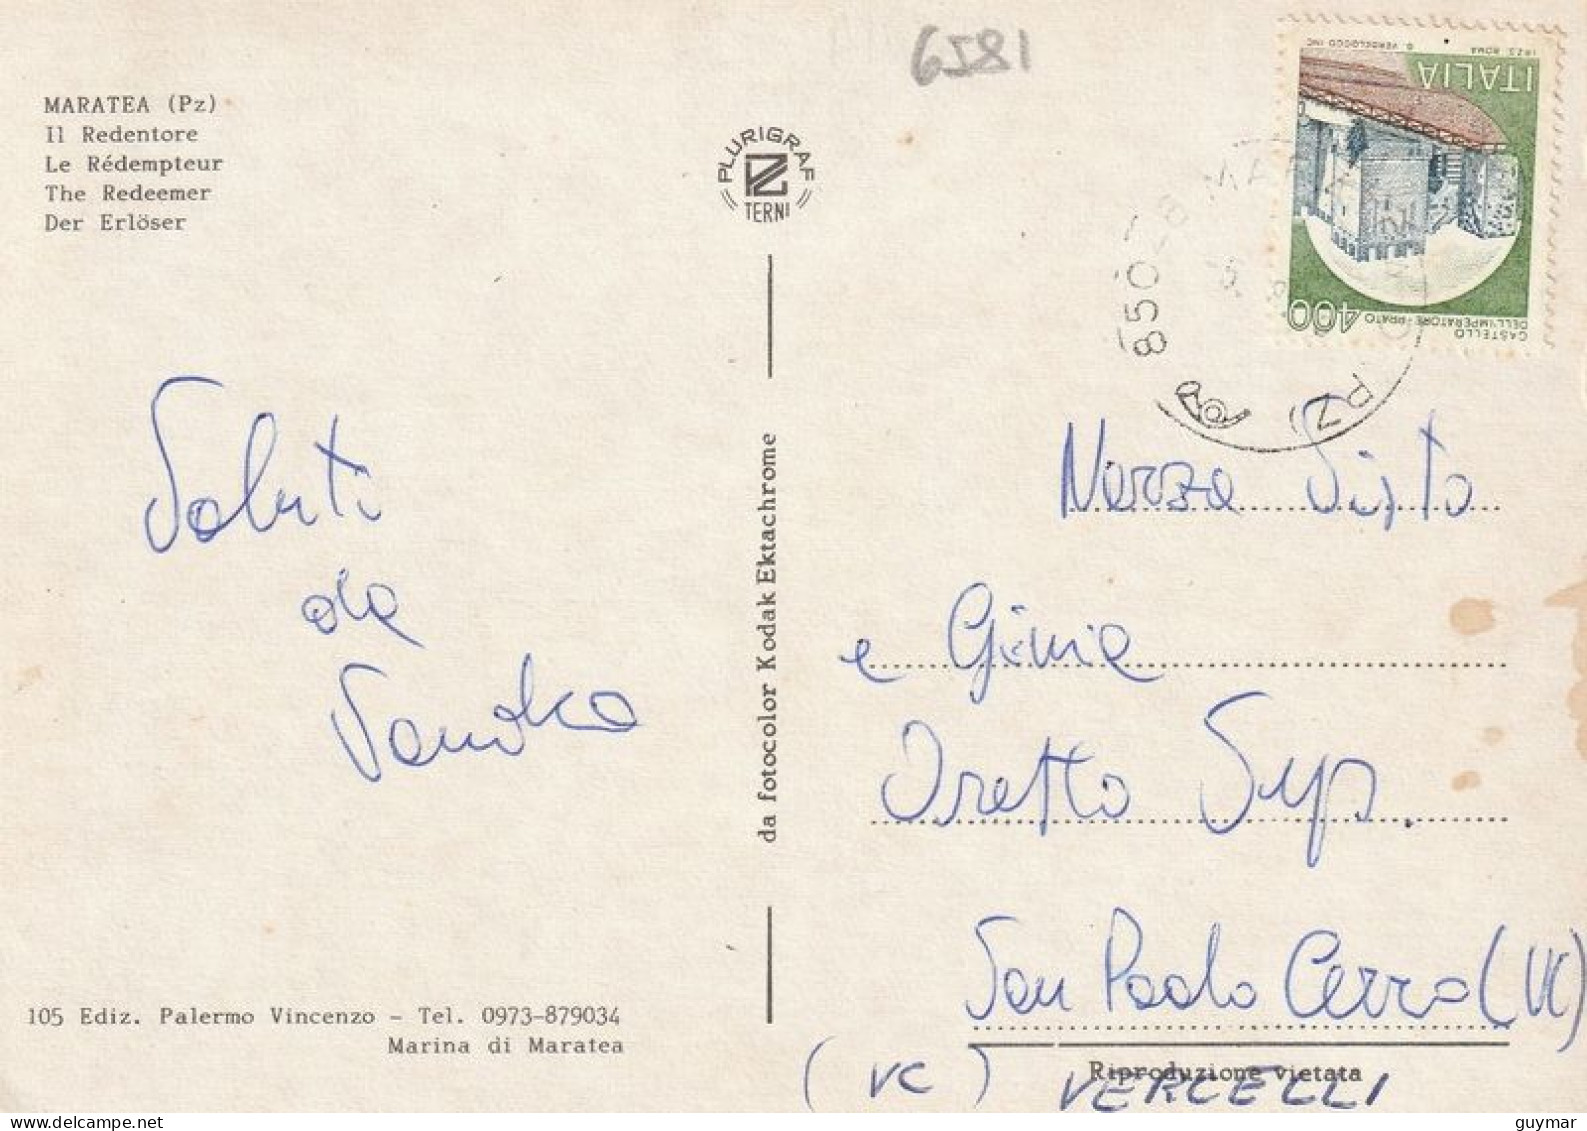 6581
MARATEA (Pz)
Il Redentore
Le Rédempteur
The Redeemer
Der Erlöser
PLURIGRAF
TERNI
I.P.Z.S. ROMA
D. VERDELOCCO INC.
ITALIA
400
CASTELLO
DELL'IMPERATORE-PRATO
850
PZ)
Saluti
da
Sandra
da fotocolor Kodak Ektachrome
Narza Sisto
e Ginia
Oretto Sup.
San Paolo Cervo (VC)
(VC) VERCELLI
105 Ediz. Palermo Vincenzo - Tel. 0973-879034
Marina di Maratea
Riproduzione vietata
guymar